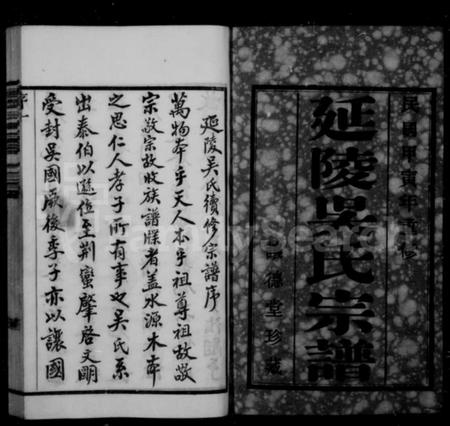 民國甲寅年重修
延陵吳氏宗譜
德堂珍藏
延陵吳氏續修宗譜序
萬物本乎天人本乎祖尊祖故敬
宗敬宗故收族譜牒者蓋水源木本
之思仁人孝子所有事也吳氏系
出泰伯以遜位至荆蠻肇啓文明
受封吳國厥後季子亦以讓國
序一